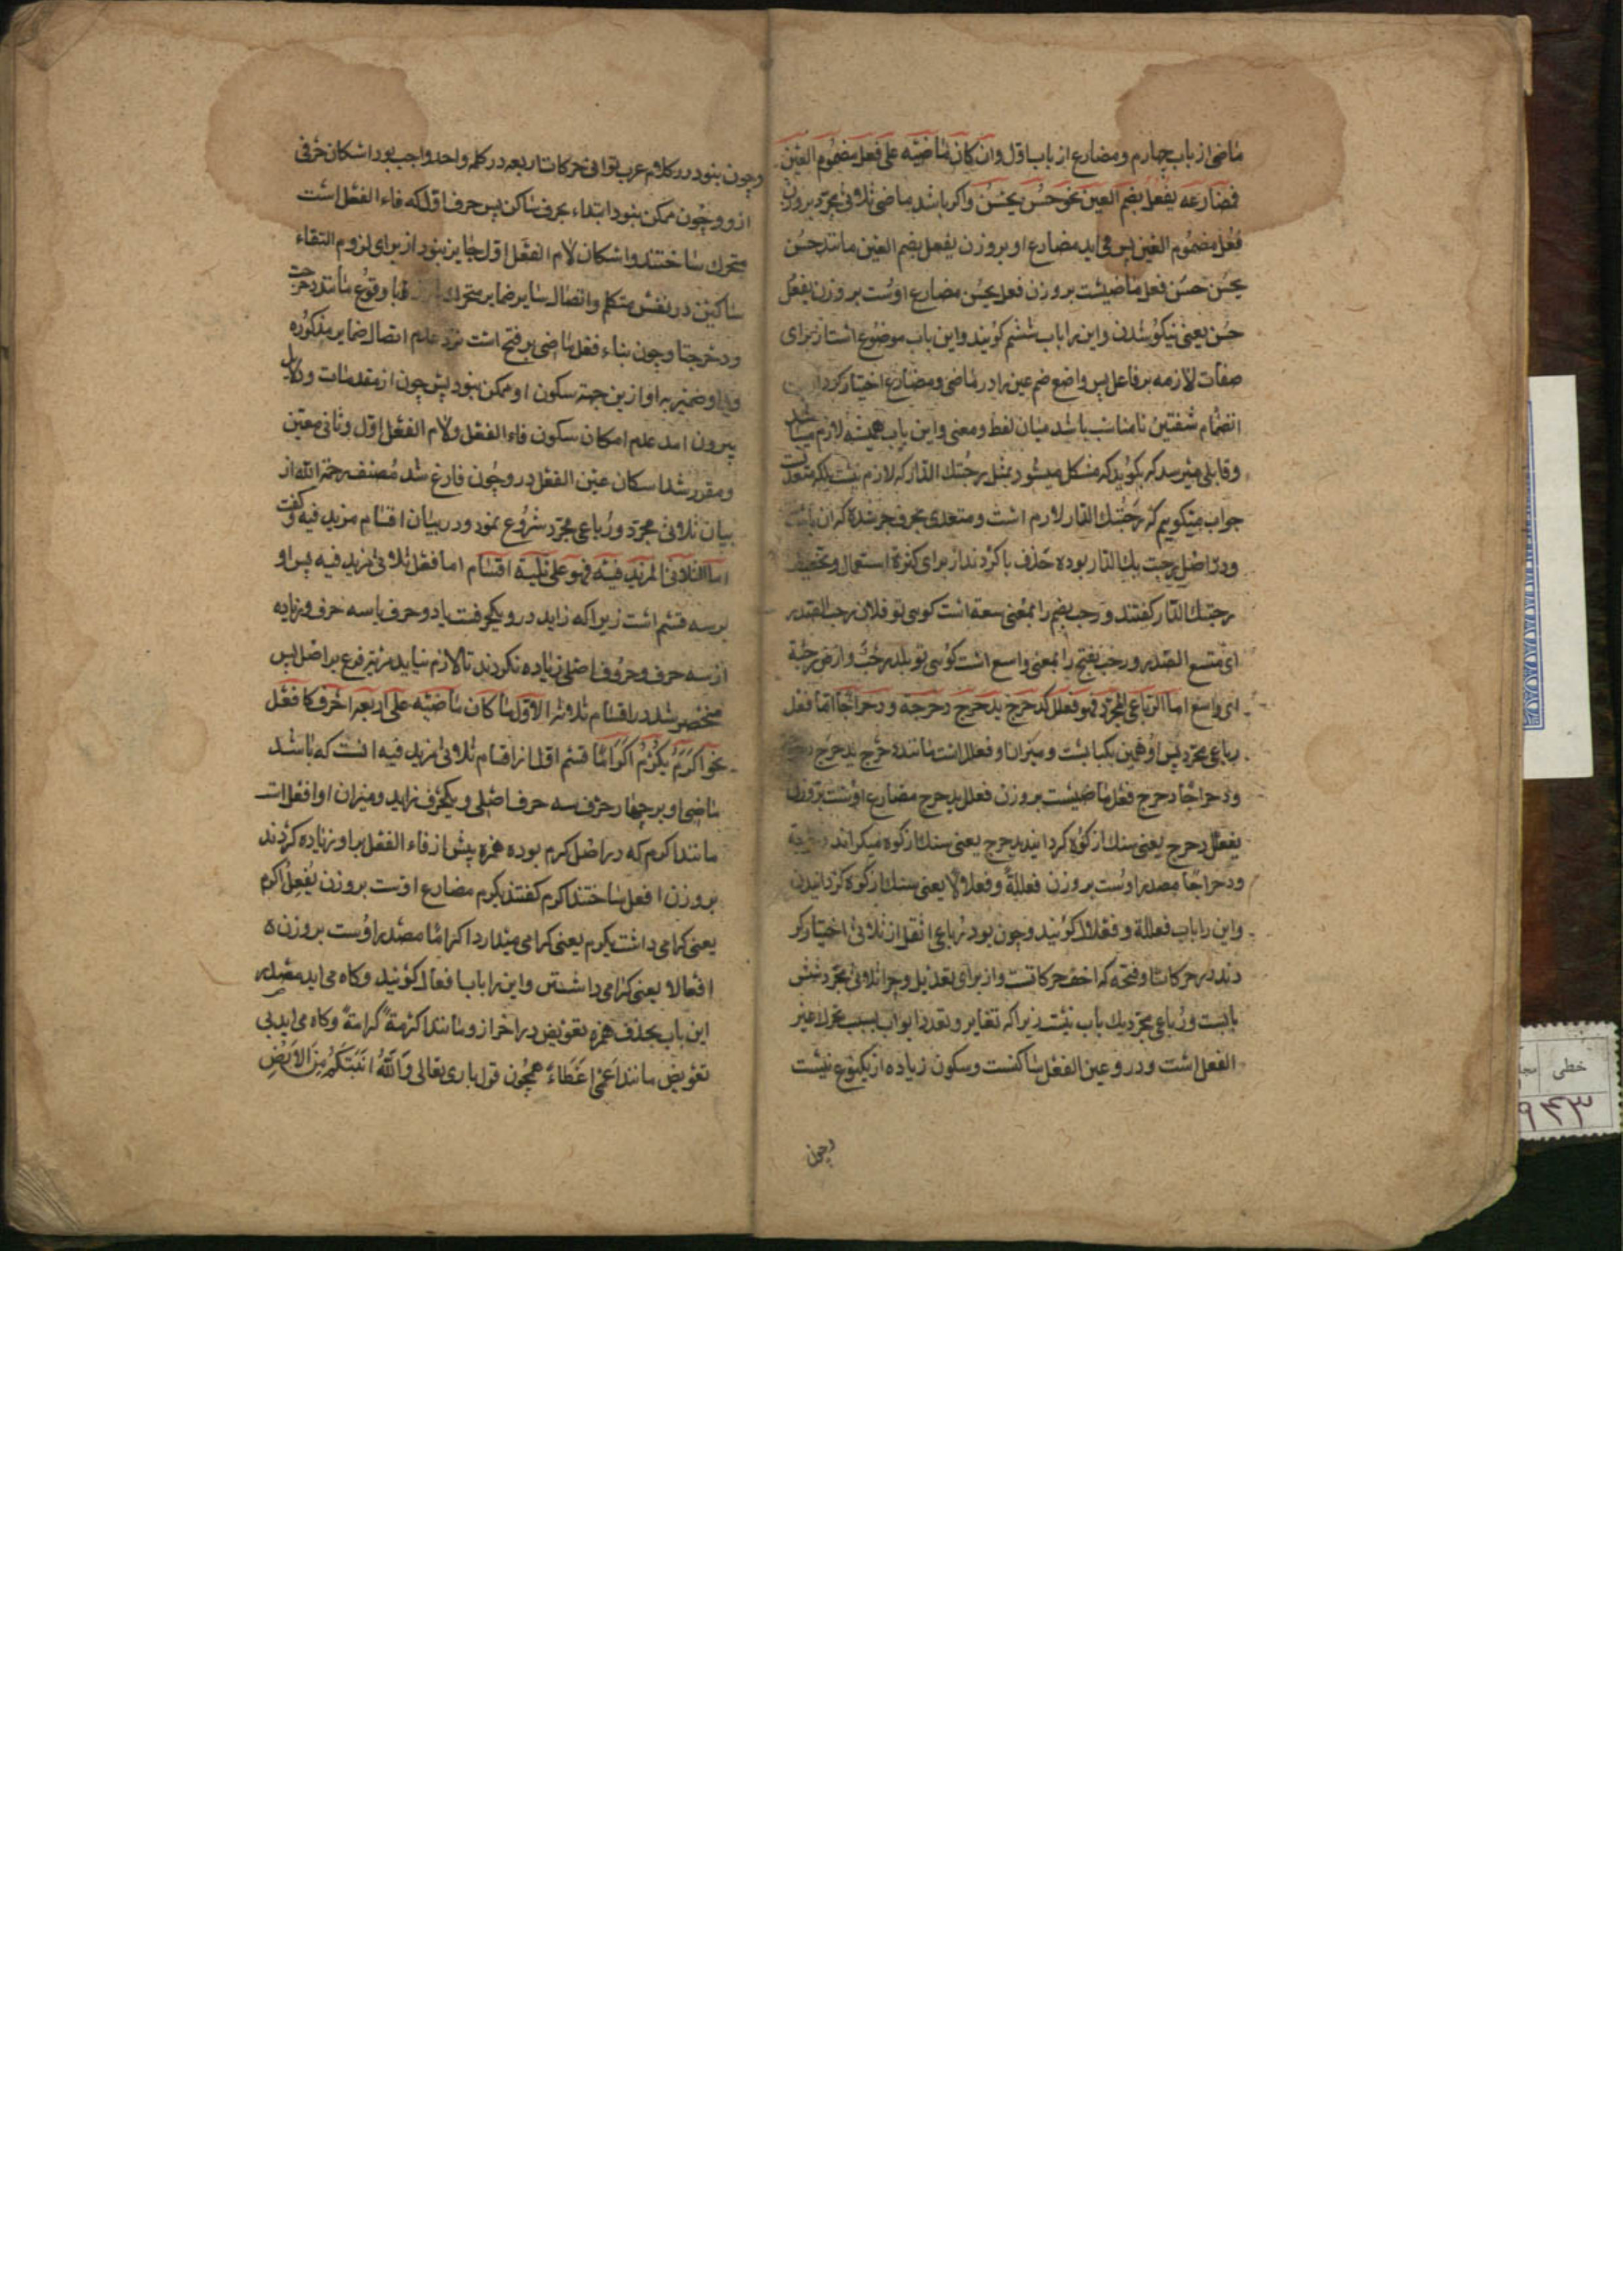 ماضی از باب چهارم و مضارع از باب اول وان کان ماضیه علی فعل مضموم العین
فمضارعه یفعل بضم العین نحو حسن یحسن واکر باشد ماضی ثلاثی مجرد بروزن
فعل مضموم العین پس می اید مضارع او بروزن یفعل بضم العین مانند حسن
یحسن حسن فعل ماضیست بروزن فعل یحسن مضارع اوست بروزن یفعل
حسن یعنی نیکو شدن و این را باب ششم کویند و این باب موضوع است از برای
صفات لازمه بر فاعل پس واضع ضم عین را در ماضی و مضارع اختیار کرد
انضمام شفتین تا مناسب باشد میان لفظ و معنی و این باب همیشه لازم میباشد
و قابلی میرسد که بکوید که مشکل میشود بمثل رحبتك الدار که لازم نیست بلکه متعدیست
جواب میکوییم که رحبتك الدار لازم است و متعدی بحرف جر شده که ان با است
و در اصل رحبت بك الدار بوده حذف با کردند از برای کثرة استعمال و تخفیف
رحبتك الدار کفتند و رحب بضم را بمعنی سعة است کویی تو فلان رحب الصدر
ای متسع الصدر و رحب بفتح را بمعنی واسع است کویی تو بلد رحب و ارض رحبة
ای واسع اما الرباعی المجرد فهو فعلل کدحرج یدحرج دحرجة و دحراجا اما فعل
رباعی مجرد پس او همین یکبابست و میزان او فعلل است مانند دحرج یدحرج
و دحراجا دحرج فعل ماضیست بروزن فعلل یدحرج مضارع اوست بروزن
یفعلل دحرج یعنی سنك از کوه کردانید یدحرج یعنی سنك از کوه میکراند دحرجة
و دحراجا مصدر اوست بروزن فعللة و فعلالا یعنی سنك از کوه کردانیدن
و این را باب فعللة و فعلالا کویند و چون بود رباعی اثقل از ثلاثی اختیار کر
دند در حرکاتنا و فتحه که اخف حرکاتست و از برای تعدیل و چرا ثلاثی مجرد شش
بابست و رباعی مجرد یك باب نیست زیرا که تغایر و تعدد ابواب بسبب تحرك عین
الفعل است و در و عین الفعل ساکنست و سکون زیاده از یکنوع نیست
وچون
وچون نبود در کلام عرب توالی حرکات اربعه در کلمه واحد واجب بود اسکان حرفی
از و و چون ممکن نبود ابتداء بحرف ساکن پس حرف اول که فاء الفعل است
متحرك ساختند و اسکان لام الفعل اول جایز نبود از برای لزوم التقاء
ساکنین در نفس متکلم و اتصال سایر ضمایر متحرك با وقوع مانند دحرجت
و دحرجتا و چون بناء فعل ماضی بر فتح است نزد عدم اتصال ضمایر مذکوره
او ضمیر به او ازین جهة سکون او ممکن نبود پس چون از مقدمات و دلایل
بیرون امد عدم امکان سکون فاء الفعل و لام الفعل اول و ثانی معین
و مقرر شد اسکان عین الفعل در و چون فارغ شد مصنف رحمه الله از
بیان ثلاثی مجرد و رباعی مجرد شروع نمود در بیان اقسام مزید فیه و کفت
اما الثلاثی المزید فیه فهو علی ثلثة اقسام اما فعل ثلاثی مزید فیه پس او
بر سه قسم است زیرا که زاید در و یکحرفست یا دو حرف یا سه حرف و زیاده
از سه حرف و حروف اصلی زیاده نکردند تا لازم نیاید مزیت فرع بر اصل پس
منحصر شد در اقسام ثلاثه الاول ما کان ماضیه علی اربعة احرف کافعل
نحو اکرم یکرم اکراما قسم اول از اقسام ثلاثی مزید فیه انست که باشد
ماضی او بر چهار حرف سه حرف اصلی و یکحرف زاید و میزان او افعل است
مانند اکرم که در اصل کرم بوده همزه پیش از فاء الفعل بر او زیاده کردند
بر وزن افعل ساختند اکرم کفتند یکرم مضارع اوست بروزن یفعل اکرم
یعنی کرامی داشت یکرم یعنی کرامی میدارد اکراما مصدر اوست بروزن
افعالا یعنی کرامی داشتن و این را باب افعال کویند و کاه می اید مصدر
این باب بحذف همزه تعویض در اخر ازو مانند اکرمة کرامة و کاه می اید بی
تعویض مانند اعطی عطاء همچون قول باری تعالی والله انبتکم من الارض
خطی
۹۴۳